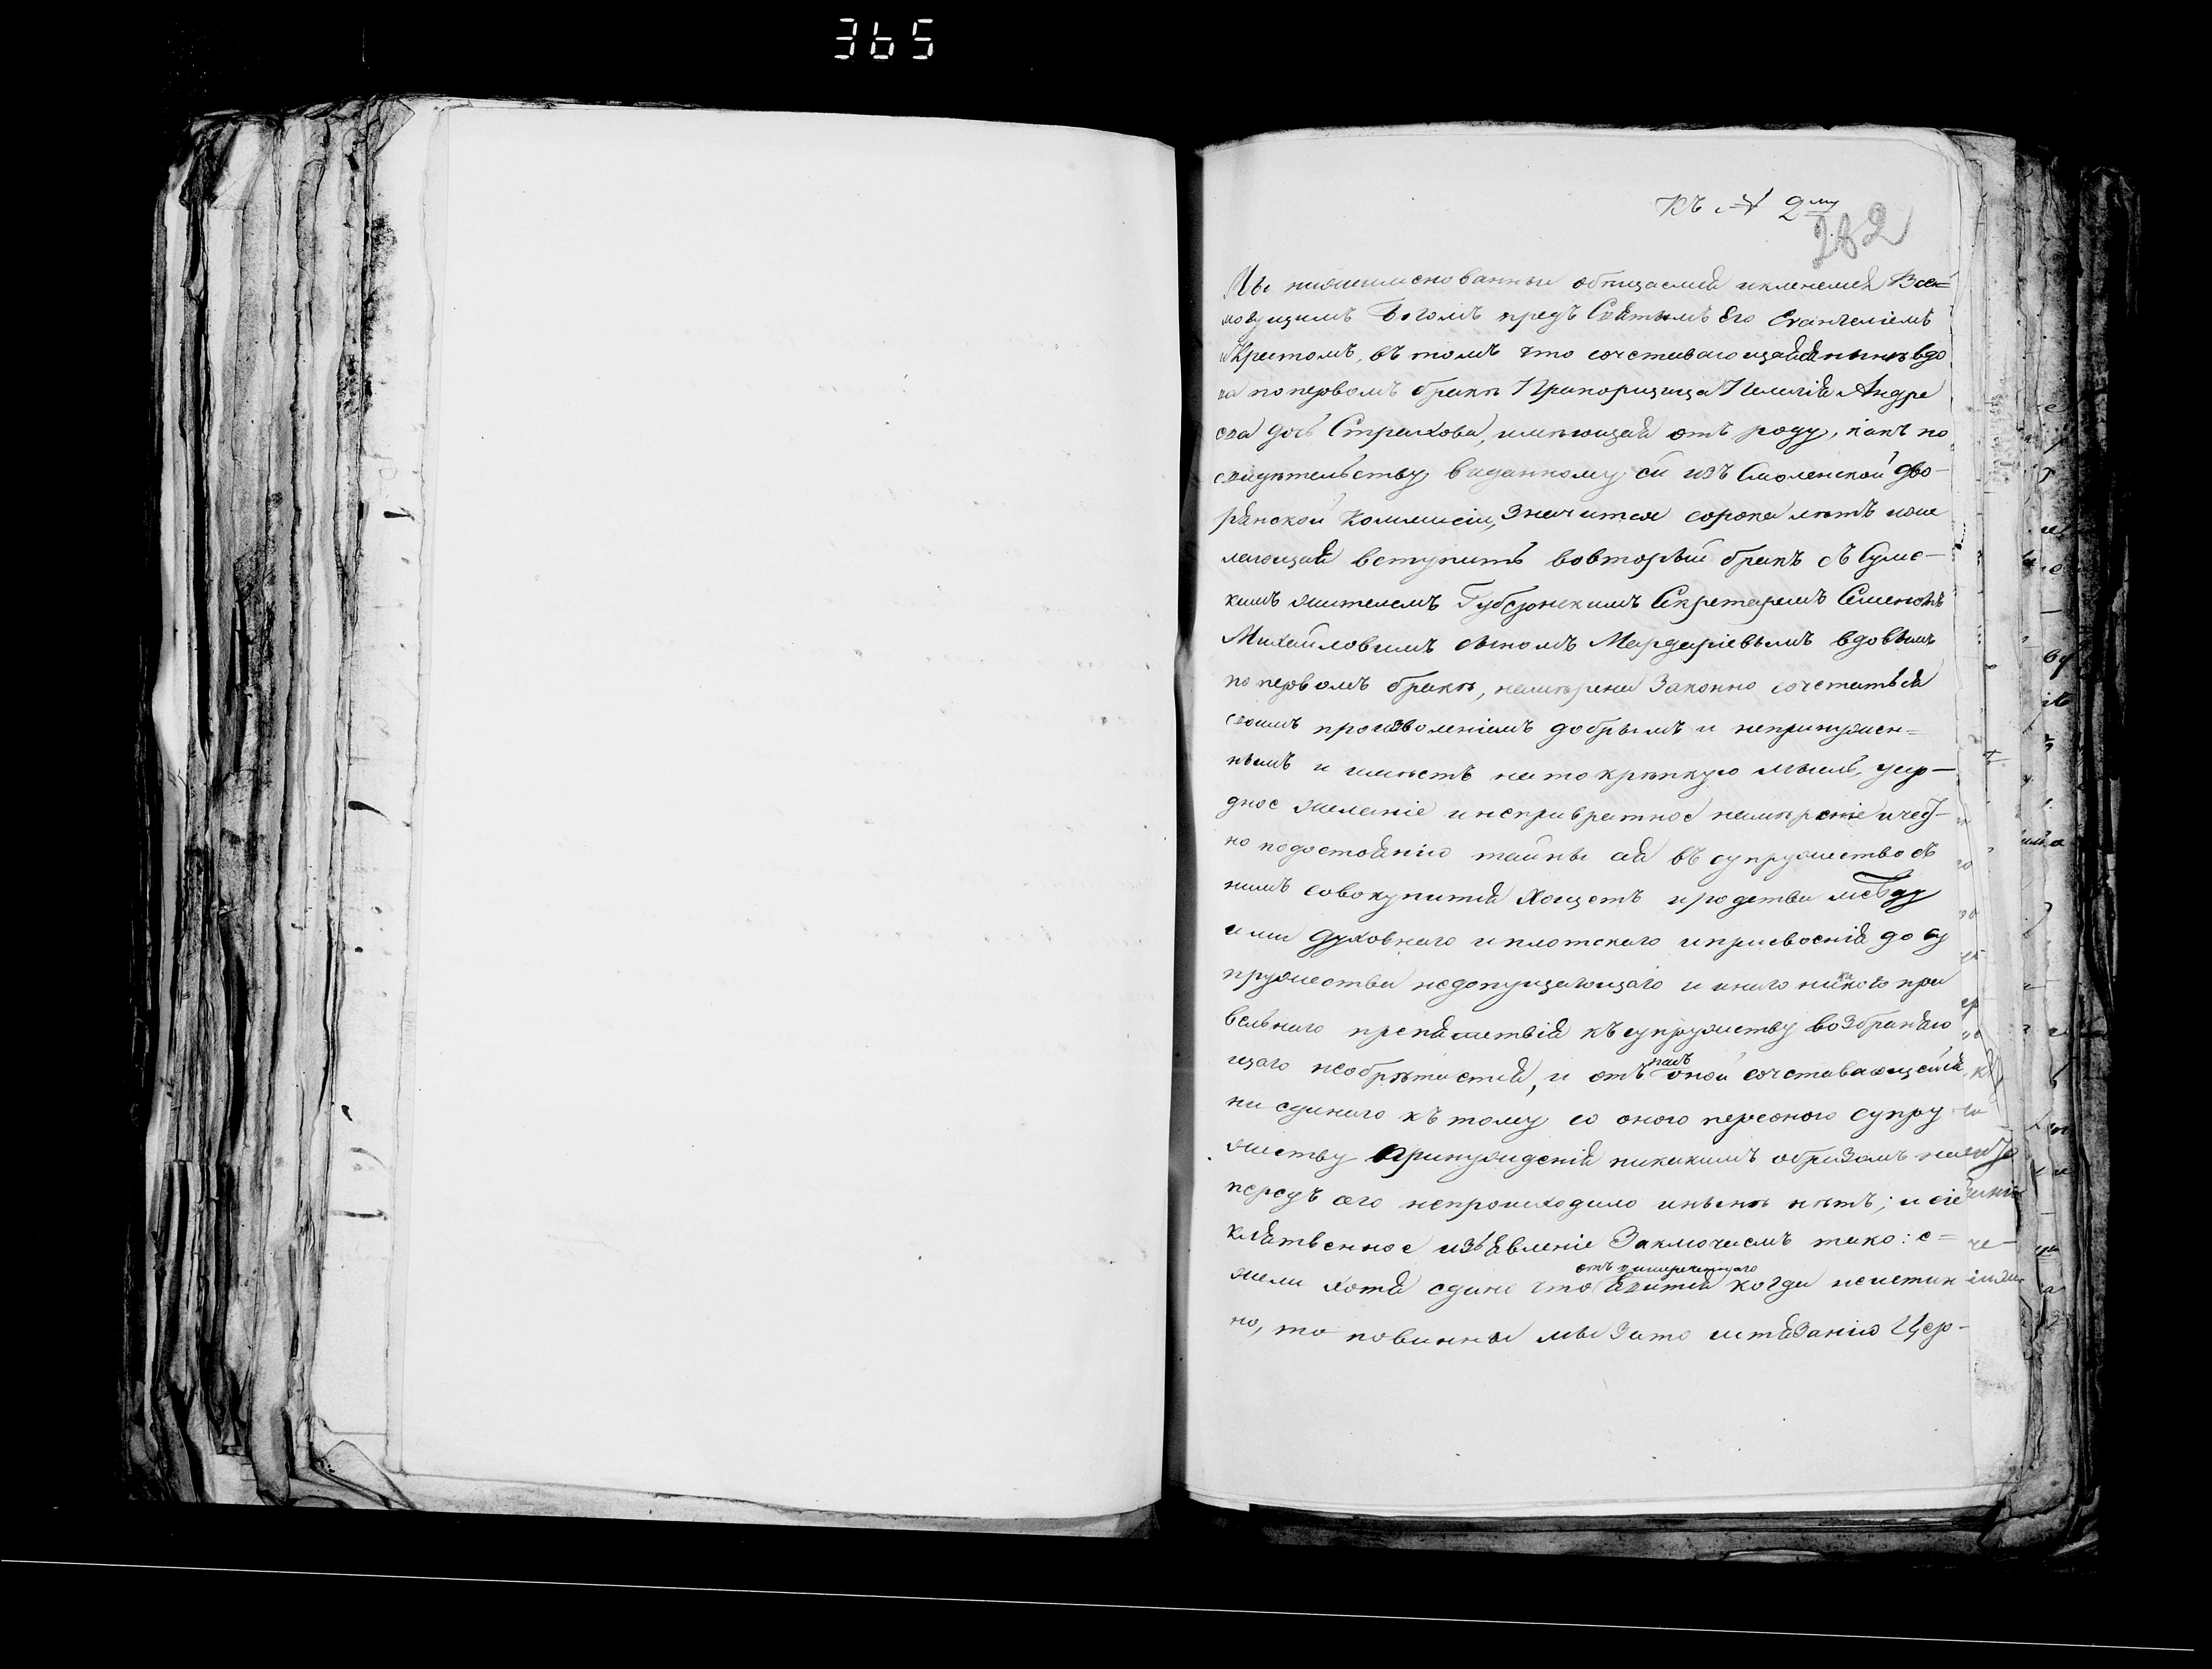 365
Къ № 2му
282
Мы нижеимено ванныи обещаемся и кленемся Все=
могущимъ Богомъ предъ Святымъ Его Евангелiемъ
и Крестомъ, въ томъ что сочетаваю щаяся нынѣ вдо
ва по первомъ бракѣ Прапорщица Пелагiя Андре
ева дочь Страхова, имѣющая отъ роду, какъ по
свидѣтельству виданному ей изъ Смоленской дво-
рянской Коммисiи, значится сорока лѣтъ поже
лающая вступить вовторый бракъ съ Сумс-
кимъ жителемъ Губернскимъ Секретаремъ Семеномъ
Михайловимъ сыномъ Мардарiевымъ вдовымъ
по первомъ бракѣ, намѣрена Законно сочетаться
своимъ произволенiемъ добрымъ и непринужен=
нымъ и имѣетъ на то крѣпкую мысль, усер-
дное желанiе и непривратное намѣренiе и чест-
но по достоянiю тайны сея въ супружество съ
нимъ совокупится хощетъ и родства между
ими духовнаго и плотскаго и присвоенiя до су
пружества недопущающаго и инаго никакого пра
вельнаго препятствiя къ супружеству возбраняю
щаго необрѣтается, и отъ насъ оной сочетавающейся
ни единаго къ тому со оного персоного супру
жеству принужденiя никакимъ образомъ на
передъ сего непроисходило и нынѣ нѣтъ; и сiе
клятвенное изъявленiе Заключаемъ тако: е=
жели хотя едино что отъ вишереченнаго явится когда неистин
но, то повинны мы за то истязанiю Цер-